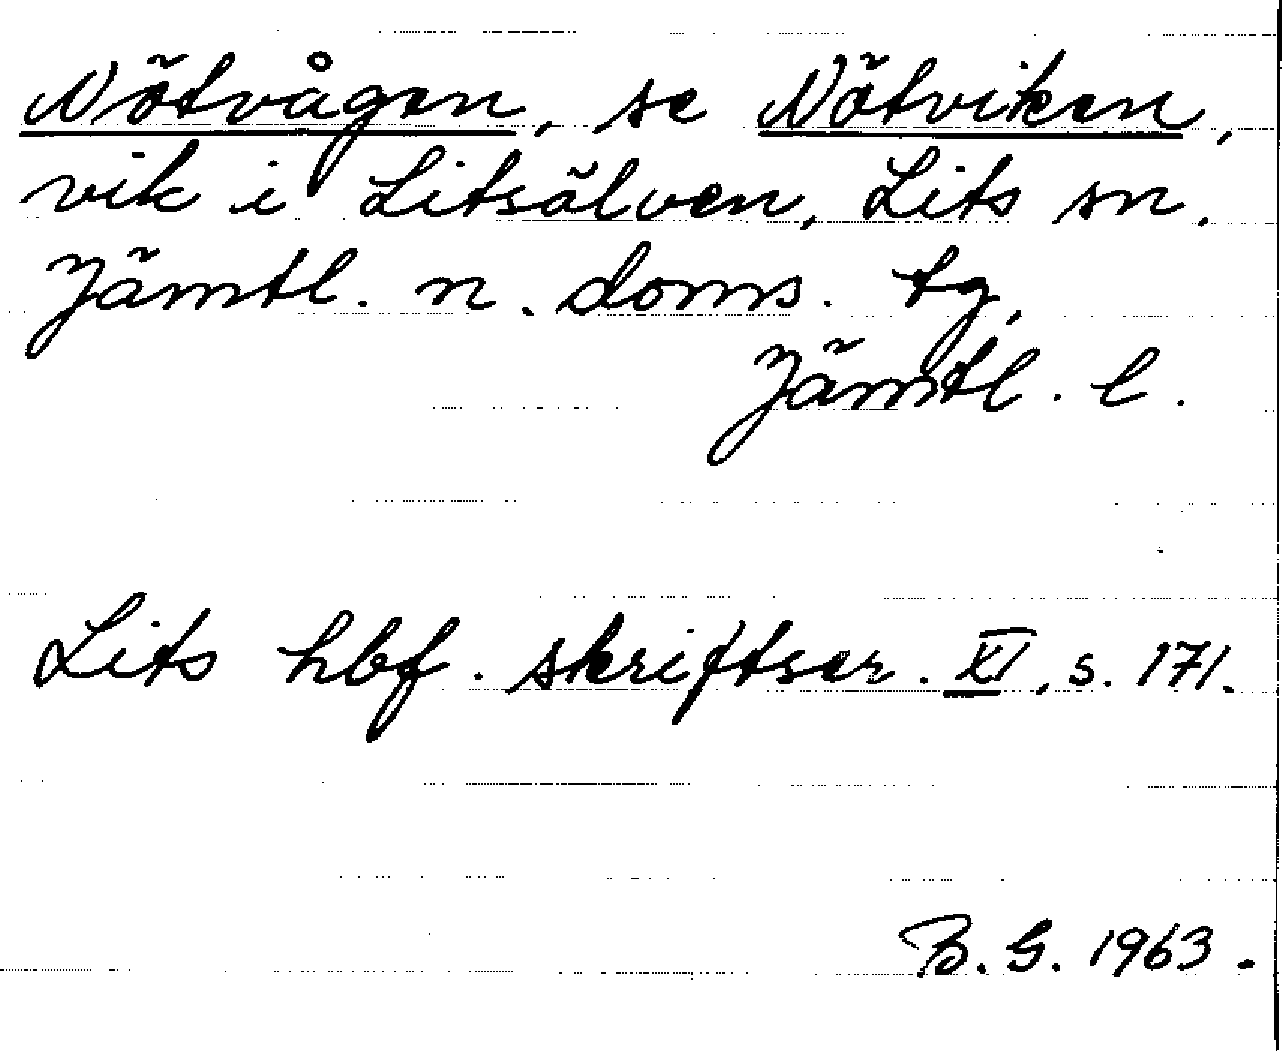 Nötvågen, se Nötviken,
vik i Litsälven, Lits sn.
Jämtl. n. doms. tg,
Jämtl. l.
Lits hbf. skriftser. XI, s. 171.
B. G. 1963.